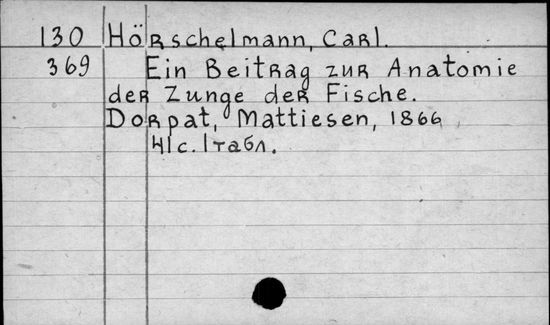 130 Hörschelmann, Carl.
369 Ein Beitrag zur Anatomie
der Zunge der Fische.
Dorpat, Mattiesen, 1866
41c. 1табл.